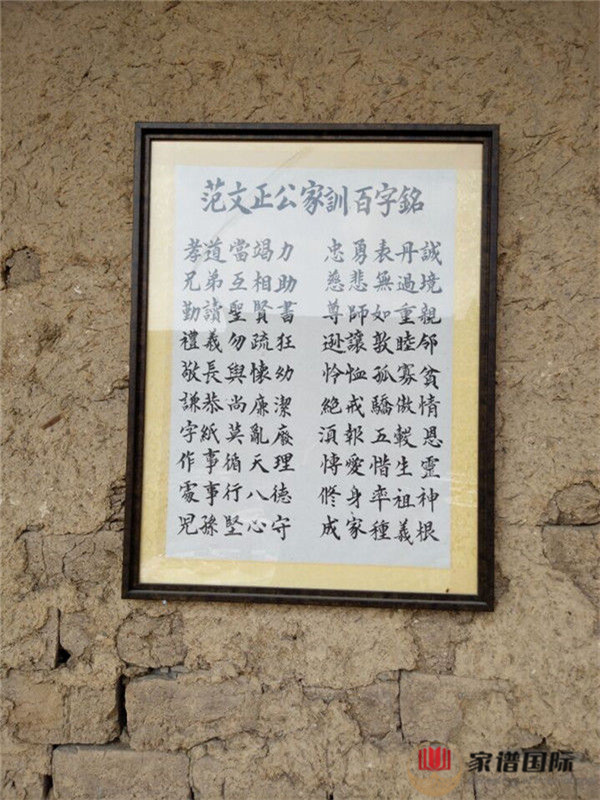 范文正公家訓百字銘
孝道當竭力 忠勇表丹誠
兄弟互相助 慈悲無過境
勤讀聖賢書 尊師如重親
禮義勿疏狂 遜讓敦睦邻
敬長與懷幼 怜恤孤寡貧
謙恭尚廉潔 絕戒驕傲情
字紙莫亂廢 湏報五穀恩
作事循天理 愽愛惜生靈
處事行八德 修身率祖神
兒孫堅心守 成家種義根
家谱国际